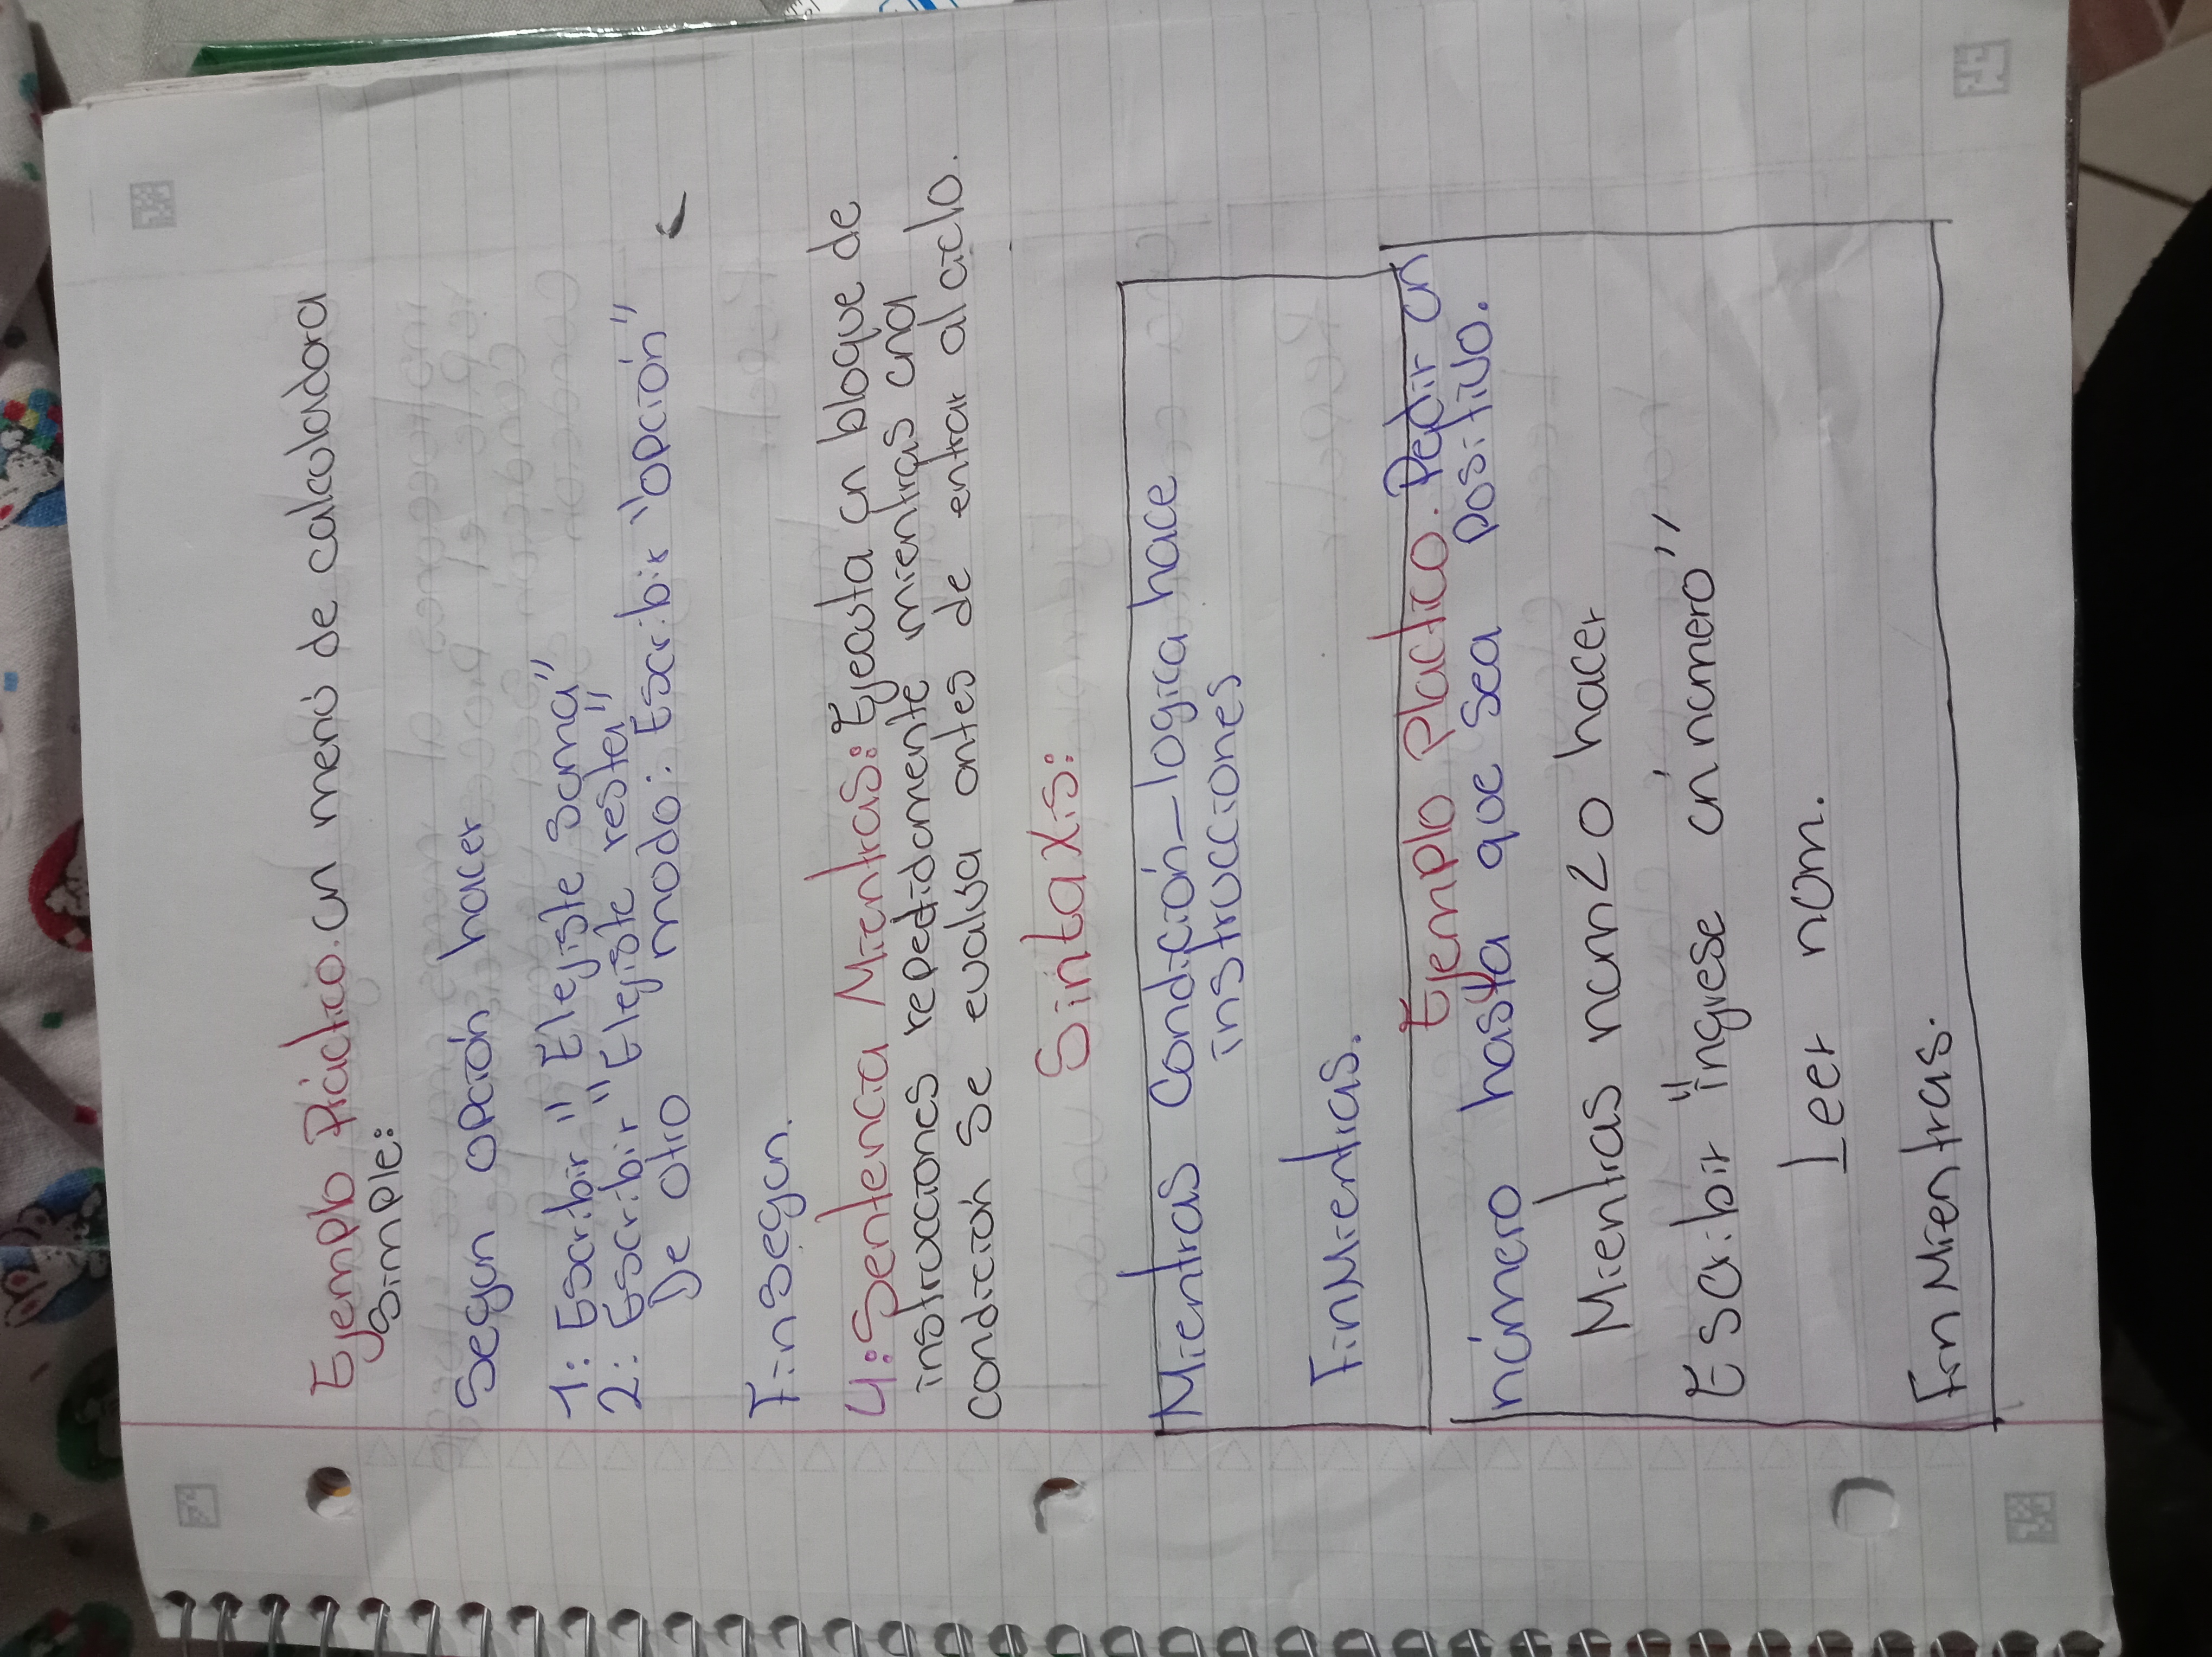 Ejemplo Práctico. un menú de calculadora
simple:
Segun opción hacer
1: Escribir "Elejiste suma"
2: Escribir "Elejiste resta"
De otro modo: Escribir "opción"
Finsegun.
4: Sentencia Mientras: Ejecuta un bloque de
instrucciones repedidamente mientras una
condición se evalua antes de entrar al ciclo.
Sintaxis:
Mientras condición_logica hace
instrucciones
FinMientras.
Ejemplo Plactico. Pedir un
número hasta que sea positivo.
Mientras num20 hacer
Escribir "ingrese un numero"
Leer num.
FinMientras.